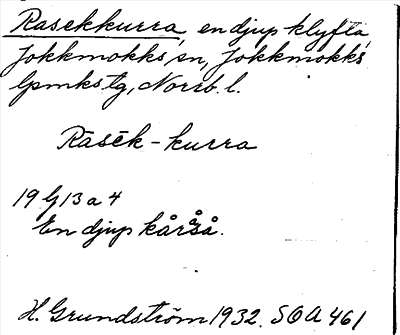 Rasekkurra, en djup klyfta,
Jokkmokks sn, Jokkmokks
lpmks tg, Norrb. l.
Rāsēk-kurra
19 G 13 a 4
En djup kårså.
H. Grundström 1932. SOA 461